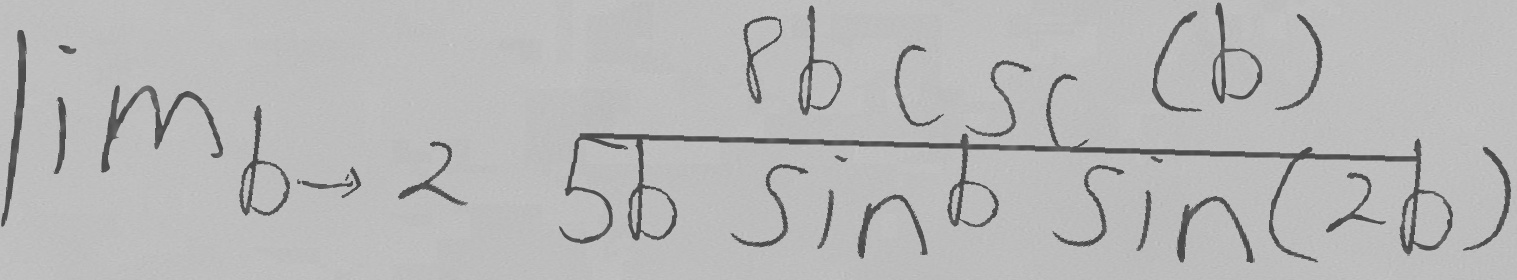 lim b→2 8b csc (b) / 5b sin b sin(2b)